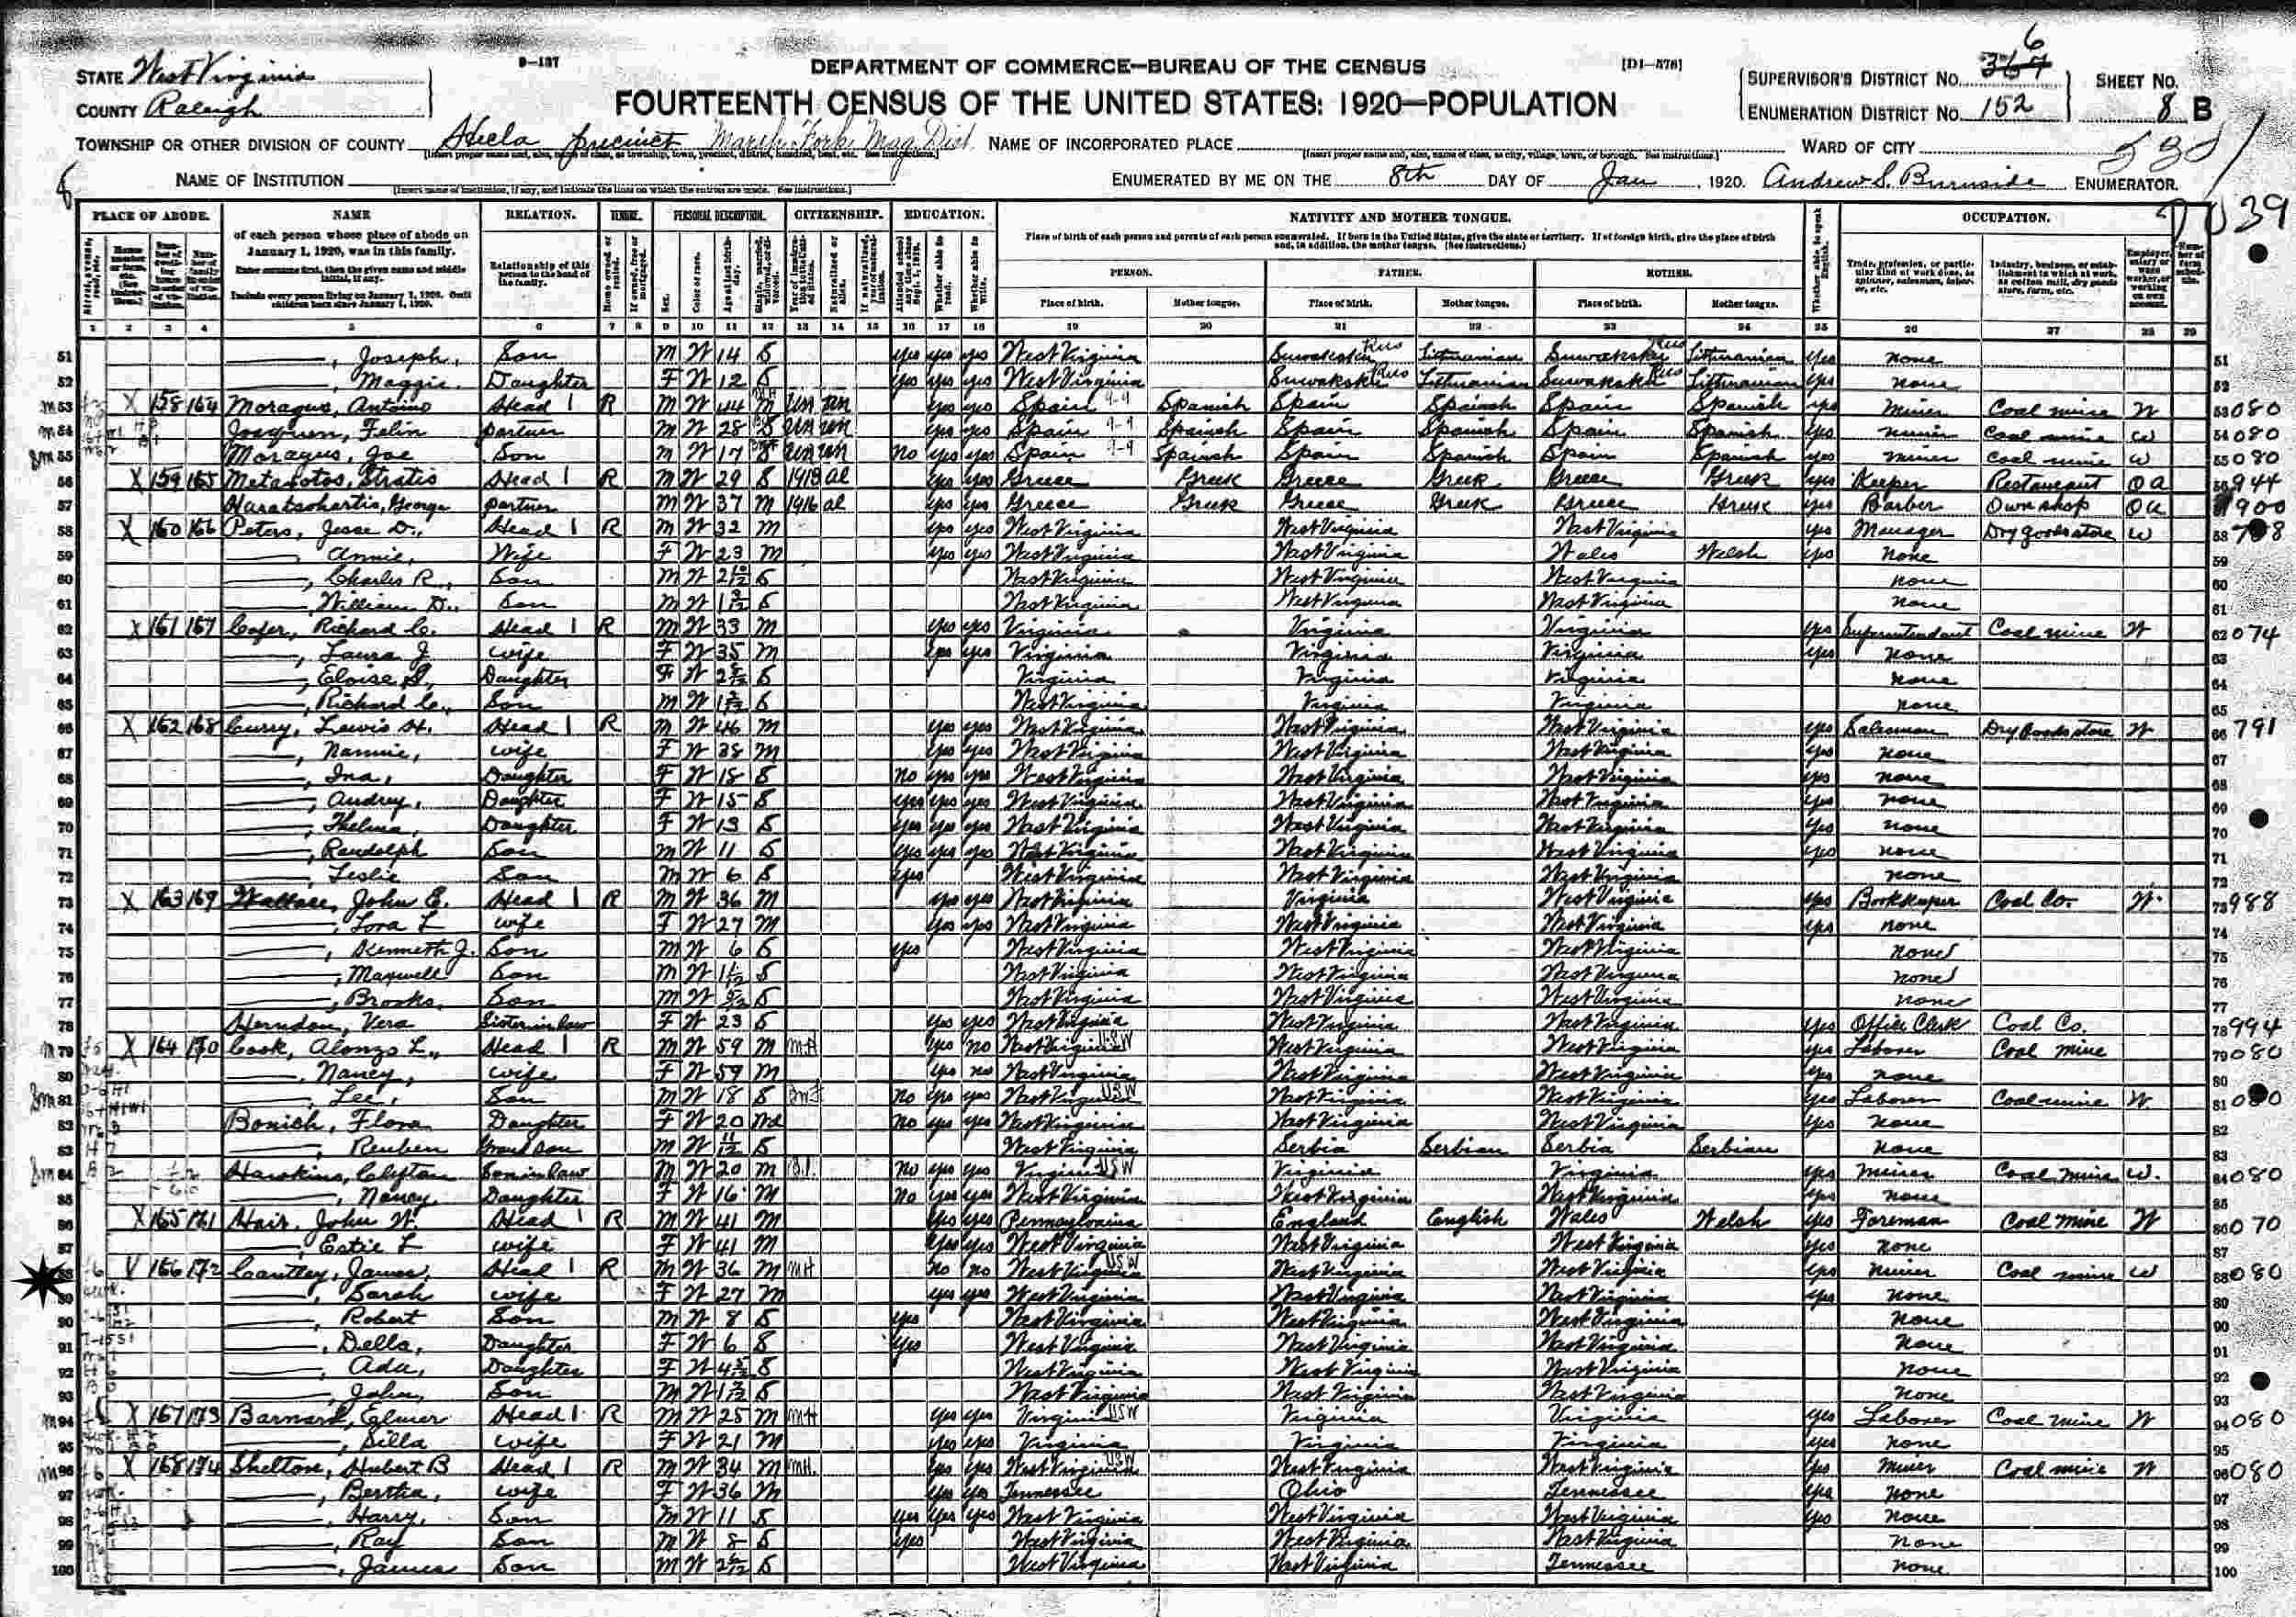 9-137
DEPARTMENT OF COMMERCE—BUREAU OF THE CENSUS
[D1-578]
FOURTEENTH CENSUS OF THE UNITED STATES: 1920—POPULATION
STATE West Virginia
COUNTY Raleigh
SUPERVISOR'S DISTRICT NO. 6
ENUMERATION DISTRICT NO. 152
SHEET NO. 8 B
TOWNSHIP OR OTHER DIVISION OF COUNTY precinct Marsh Fork Mag Dist. NAME OF INCORPORATED PLACE WARD OF CITY
NAME OF INSTITUTION ENUMERATED BY ME ON THE 8th DAY OF Jan, 1920. Andrew S. Burnside ENUMERATOR.
PLACE OF ABODE. NAME RELATION. TENURE. PERSONAL DESCRIPTION. CITIZENSHIP. EDUCATION. NATIVITY AND MOTHER TONGUE. OCCUPATION.
of each person whose place of abode on January 1, 1920, was in this family.
Enter surname first, then the given name and middle initial, if any.
Include every person living on January 1, 1920. Omit children born since January 1, 1920.
Relationship of this person to the head of the family.
Place of birth of each person and parents of each person enumerated. If born in the United States, give the state or territory. If of foreign birth, give the place of birth and, in addition, the mother tongue. (See instructions.)
PERSON. FATHER. MOTHER.
Place of birth. Mother tongue. Place of birth. Mother tongue. Place of birth. Mother tongue.
1 2 3 4 5 6 7 8 9 10 11 12 13 14 15 16 17 18 19 20 21 22 23 24 25 26 27 28 29
51 Joseph, Son M W 14 S yes yes yes West Virginia Lithuanian Lithuanian yes none
52 Maggie Daughter F W 12 S yes yes yes West Virginia Lithuanian Lithuanian yes none
53 158 164 Moragus, Antoino Head 1 R M W 44 M un un yes yes Spain Spanish Spain Spanish Spain Spanish yes Miner Coal mine W 080
54 partner M W 28 S un un yes yes Spain Spanish Spain Spanish Spain Spanish yes miner Coal mine W 080
55 Moragus, Joe Son M W 17 S un un no yes yes Spain Spanish Spain Spanish Spain Spanish yes miner Coal mine W 080
56 159 165 Stratis Head 1 R M W 29 S 1913 al yes yes Greece Greek Greece Greek Greece Greek yes Keeper Restaurant OA 944
57 George partner M W 37 M 1916 al yes yes Greece Greek Greece Greek Greece Greek yes Barber Own shop OA 900
58 160 166 Peters, Jesse D., Head 1 R M W 32 M yes yes West Virginia West Virginia West Virginia yes Manager Dry goods store W
59 Annie, Wife F W 23 M yes yes West Virginia West Virginia Wales Welsh yes none
60 Charles R., Son M W 2 10/12 S West Virginia West Virginia West Virginia none
61 William D., Son M W S West Virginia West Virginia West Virginia none
62 161 167 Cofer, Richard C. Head 1 R M W 33 M yes yes Virginia Virginia Virginia yes Superintendant Coal mine W 074
63 Laura J wife F W 35 M yes yes Virginia Virginia Virginia yes none
64 Eloise Daughter F W S Virginia Virginia Virginia none
65 Richard C., Son M W S West Virginia Virginia Virginia none
66 162 168 Curry, Lewis H. Head 1 R M W 46 M yes yes West Virginia West Virginia West Virginia yes Salesman Dry Goods store W 791
67 Nannie, wife F W 38 M yes yes West Virginia West Virginia West Virginia yes none
68 Ina, Daughter F W 18 S no yes yes West Virginia West Virginia West Virginia yes none
69 Audrey, Daughter F W 15 S yes yes yes West Virginia West Virginia West Virginia yes none
70 Thelma, Daughter F W 13 S yes yes yes West Virginia West Virginia West Virginia yes none
71 Randolph Son M W 11 S yes yes yes West Virginia West Virginia West Virginia yes none
72 Leslie Son M W 6 S yes West Virginia West Virginia West Virginia none
73 163 169 Wallace, John E. Head 1 R M W 36 M yes yes West Virginia Virginia West Virginia yes Bookkeeper Coal Co. W. 988
74 Lora L wife F W 27 M yes yes West Virginia West Virginia West Virginia yes none
75 Kenneth J. Son M W 6 S yes West Virginia West Virginia West Virginia none
76 Maxwell Son M W S West Virginia West Virginia West Virginia none
77 Brooks, Son M W S West Virginia West Virginia West Virginia none
78 Herndon, Vera Sister in law F W 23 S yes yes West Virginia West Virginia West Virginia yes Office Clerk Coal Co. 994
79 164 170 Cook, Alonzo L., Head 1 R M W 59 M yes no West Virginia West Virginia West Virginia yes Laborer Coal mine 080
80 Nancy, wife F W 59 M yes no West Virginia West Virginia West Virginia yes none
81 Lee, Son M W 18 S no yes yes West Virginia West Virginia West Virginia yes Laborer Coal mine W
82 Bonich, Flora Daughter F W 20 Wd no yes yes West Virginia West Virginia West Virginia yes none
83 Reuben Grand son M W 11/12 S West Virginia Serbia Serbian Serbia Serbian none
84 Hawkins, Clifton Son in law M W 20 M no yes yes Virginia Virginia Virginia yes Miner Coal mine W. 080
85 Nancy Daughter F W 16 M no yes yes West Virginia West Virginia West Virginia yes none
86 165 171 Hair, John W. Head 1 R M W 41 M yes yes Pennsylvania England English Wales Welsh yes Foreman Coal mine W 070
87 Estie L wife F W 41 M yes yes West Virginia West Virginia West Virginia yes none
88 166 172 Cantley, James, Head 1 R M W 36 M no no West Virginia West Virginia West Virginia yes miner Coal mine W 080
89 Sarah wife F W 27 M yes yes West Virginia West Virginia West Virginia yes none
90 Robert Son M W 8 S yes West Virginia West Virginia West Virginia none
91 Della, Daughter F W 6 S yes West Virginia West Virginia West Virginia none
92 Ada, Daughter F W S West Virginia West Virginia West Virginia none
93 John, Son M W S West Virginia West Virginia West Virginia none
94 167 173 Barnard, Elmer Head 1 R M W 25 M yes yes Virginia Virginia Virginia yes Laborer Coal mine W 080
95 wife F W 21 M yes yes Virginia Virginia Virginia yes none
96 168 174 Shelton, Hubert B Head 1 R M W 34 M yes yes West Virginia West Virginia West Virginia yes Miner Coal mine W 080
97 Bertha, wife F W 36 M yes yes Tennessee Ohio Tennessee yes none
98 Harry, Son M W 11 S yes yes yes West Virginia West Virginia West Virginia yes none
99 Ray Son M W 8 S yes West Virginia West Virginia West Virginia none
100 James Son M W S West Virginia West Virginia Tennessee none